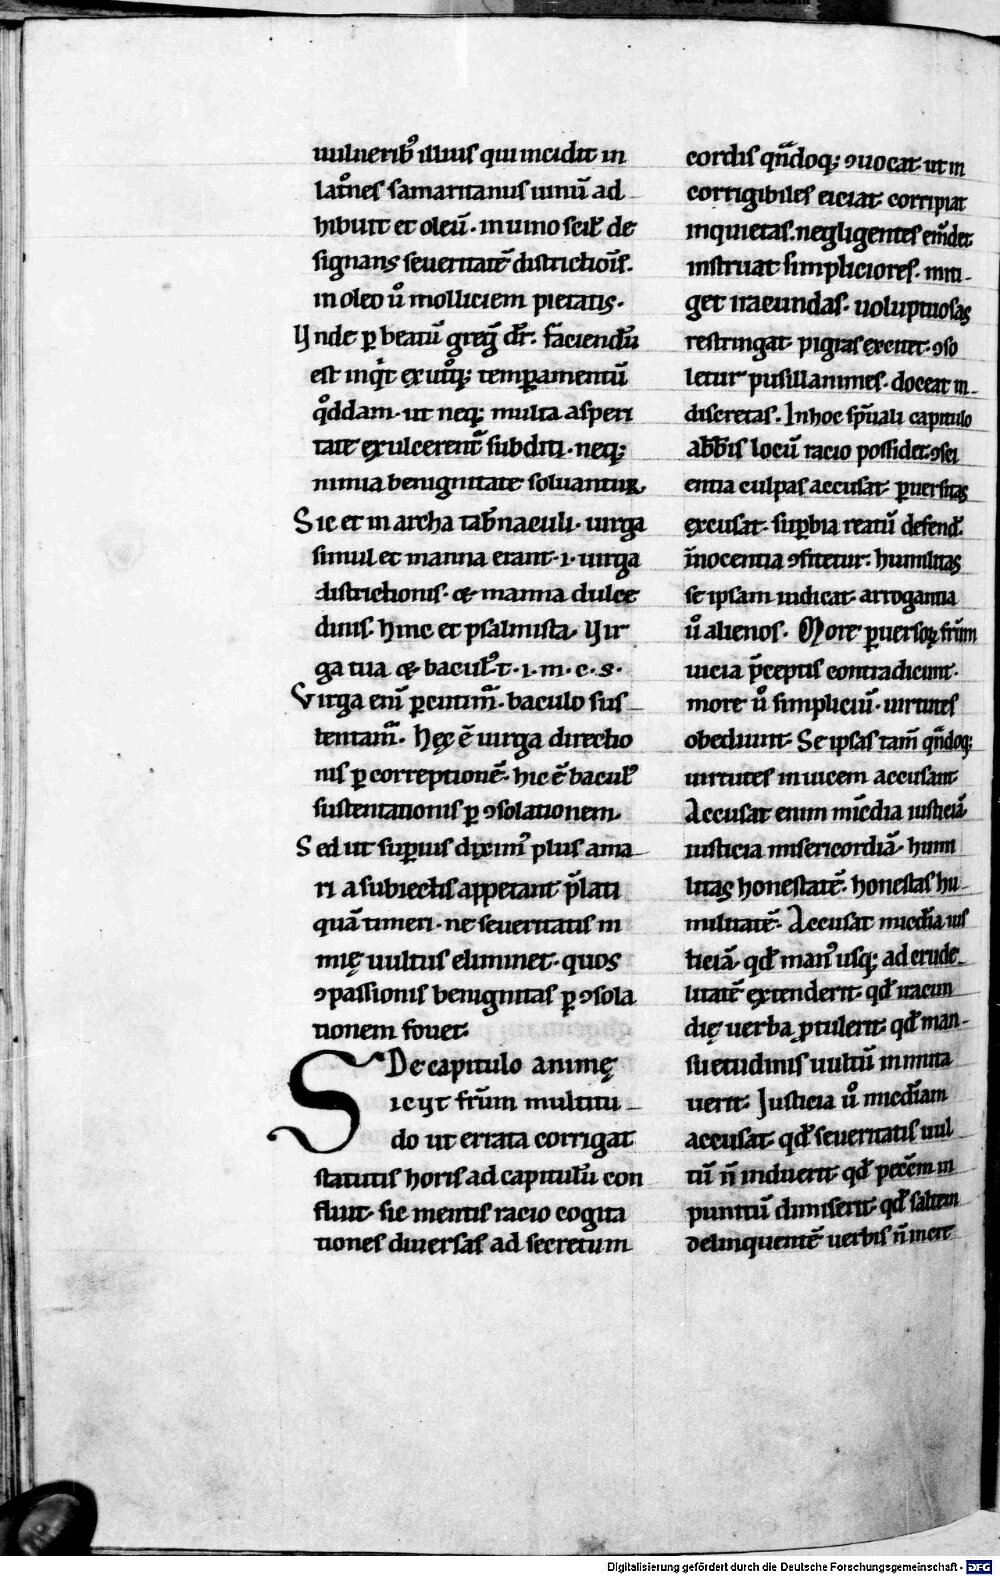 uulneribꝰ illius qui incidit in
latͦnes samaritanus uinū ad
hibuit et oleū · in uino scilꝫ de
signans seueritatē districtiōis.
in oleo u̾o molliciem pietatis ·
Vnde ꝑ beatū greḡ dr̄. faciendū
est inqͥt ex utͦqꝫ temꝑamentū
qͦddam · ut neqꝫ multa asperi
tate exulcerent᷑ subditi · neqꝫ
nimia benignitate soluantur.
Sic et in archa tab̄naculi · uirga
simul et manna erant · i · uirga
districtionis · & manna dulce
dinis. hinc et psalmista. Vir
ga tua & baculꝰ t · i · m · c · s ·
Virga eni ̄ ꝑcutimᷓ · baculo sus
tentamᷓ. Hęc ē uirga directio
nis ꝑ correptionē. hic ē baculꝰ
sustentationis ꝑ ꝯsolationem.
Sed ut suꝑius diximꝰ plus ama
ri a subiectis appetant p̄lati
quā timeri · ne seueritatis ni
mię uultus eliminet · quos
ꝯpassionis benignitas ꝑ ꝯsola
tionem fouet.
De capitulo animę
Sicut fr̄um multitu
do ut errata corrigat
statutis horis ad capitulū con
fluit · sic mentis racio cogita
tiones diuersas ad secretum
cordis qn̄doqꝫ ꝯuocat · ut in
corrigibiles eiciat · corripiat
inquietas · negligentes em̄det
instruat simpliciores · miti
get iracundas · uoluptuosas
restringat · pigras excitet · ꝯso
letur pusillanimes · doceat in
discretas. In hoc sp̄uali capitulo
abb̄is locū racio possidet · ꝯsci
entia culpas accusat · ꝑuersitas
excusat · suꝑbia reatū defend̄
īnocentia ꝯfitetur · humilitas
se ipsam iudicat · arrogantia
u̾o alienos. More ꝑuersoꝝ fr̄um
uicia p̄ceptis contradicunt ·
more u̾o simpliciū · uirtutes
obediunt. Se ipsas tam̄ qn̄doqꝫ
uirtutes inuicem accusant.
Accusat enim mīcdia iusticiā ·
iusticia misericordiā · humi
litas honestatē. honestas hu
militatē. Accusat mīcdia ius
ticiā · qd̄ manꝰ usqꝫ ad crude
litatē extenderit · qd̄ iracun
dię uerba ꝓtulerit · qd̄ man
suetudinis uultū inmuta
uerit. Justicia u̾o mīcdiam
accusat · qd̄ seueritatis uul
tū n̄ induerit · qd̄ pecc̄m in
punitū dimiserit · qd̄ saltem
delinquentē uerbis n̄ incre
Digitalisierung gefördert durch die Deutsche Forschungsgemeinschaft - DFG